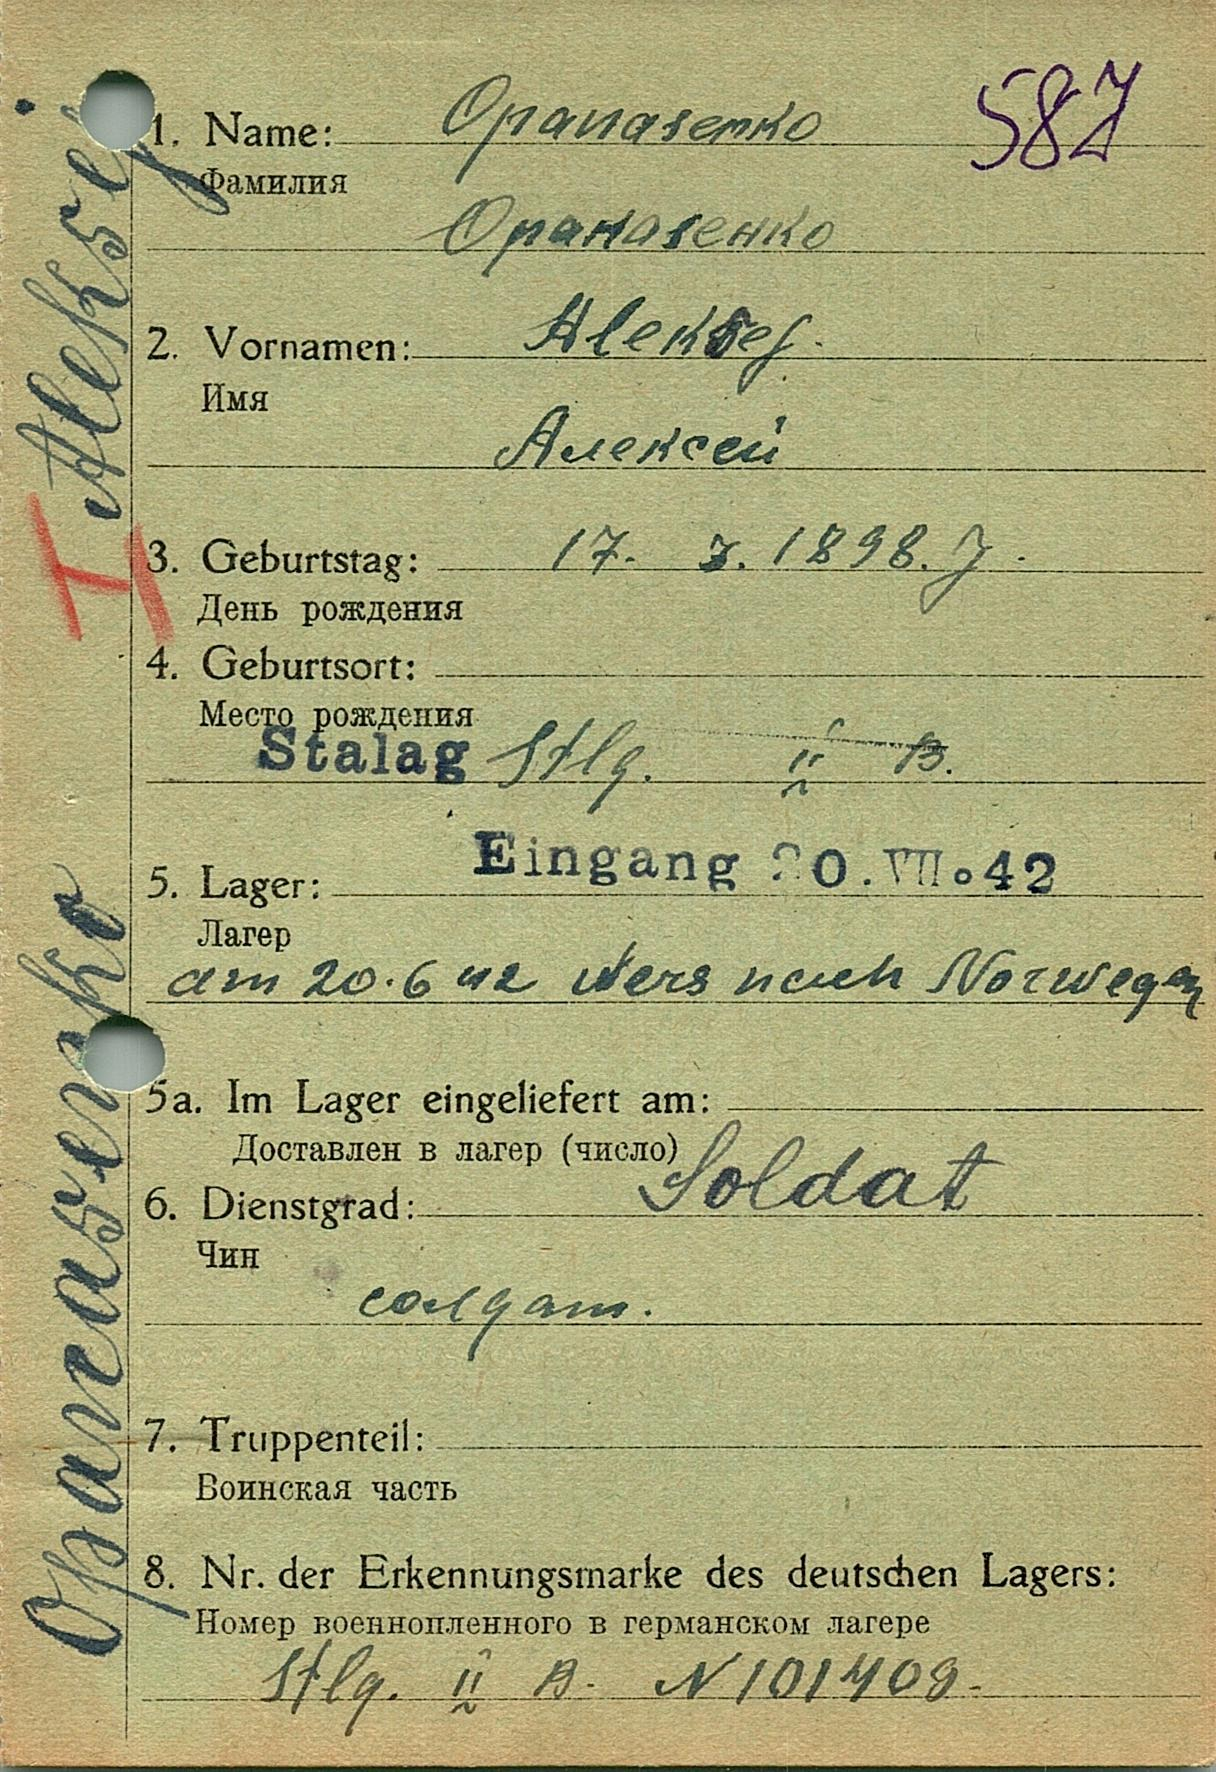 587
1. Name: Opanasenko
Фамилия
Opanasenko
2. Vornamen: Aleksej.
Имя
Алексей
3. Geburtstag: 17. 3. 1898. J.
День рождения
4. Geburtsort:
Место рождения
Stalag Stlg. II B.
Eingang 20.VII.42
5. Lager:
Лагер
am 20.6 42 Vers nach Norwegen
5a. Im Lager eingeliefert am:
Доставлен в лагер (число)
6. Dienstgrad: Soldat
Чин
солдат.
7. Truppenteil:
Воинская часть
8. Nr. der Erkennungsmarke des deutschen Lagers:
Номер военнопленного в германском лагере
Stlg. II B. N 101409.
Opanasenko Aleksej